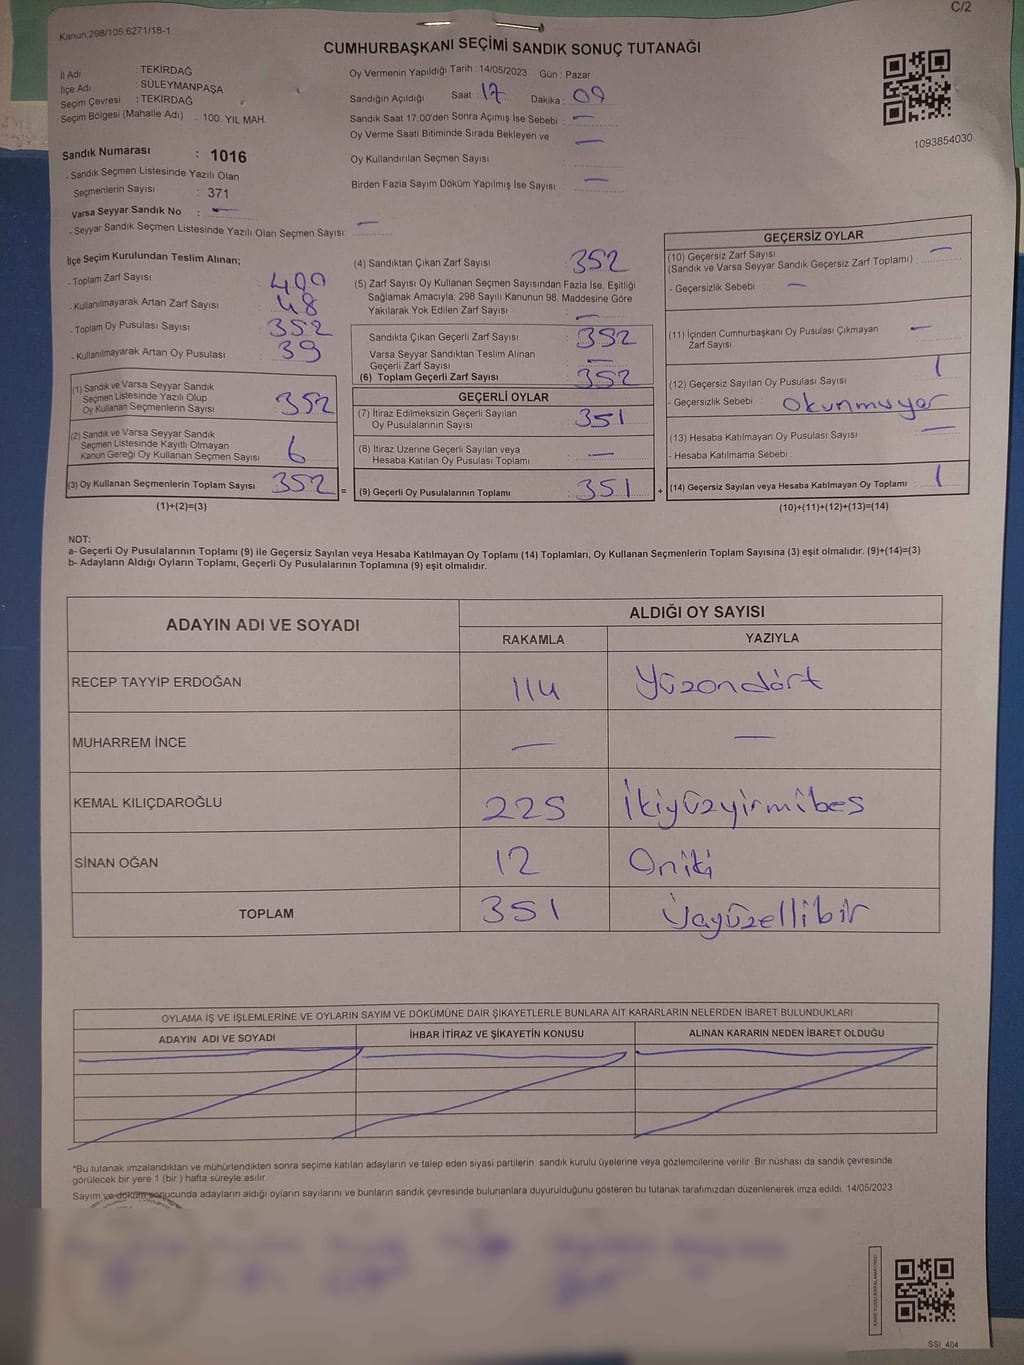 C/2
Kanun,298/105,6271/18-1
CUMHURBAŞKANI SEÇİMİ SANDIK SONUÇ TUTANAĞI
İl Adı : TEKİRDAĞ
İlçe Adı : SÜLEYMANPAŞA
Seçim Çevresi : TEKİRDAĞ
Seçim Bölgesi (Mahalle Adı) : 100. YIL MAH.
Oy Vermenin Yapıldığı Tarih : 14/05/2023 Gün : Pazar
Sandığın Açıldığı Saat 17 Dakika : 09
Sandık Saat 17:00'den Sonra Açımış İse Sebebi : —
Oy Verme Saati Bitiminde Sırada Bekleyen ve —
Oy Kullandırılan Seçmen Sayısı
Birden Fazla Sayım Döküm Yapılmış İse Sayısı : —
1093854030
Sandık Numarası : 1016
- Sandık Seçmen Listesinde Yazılı Olan
Seçmenlerin Sayısı : 371
Varsa Seyyar Sandık No : —
- Seyyar Sandık Seçmen Listesinde Yazılı Olan Seçmen Sayısı: —
İlçe Seçim Kurulundan Teslim Alınan;
- Toplam Zarf Sayısı : 400
- Kullanılmayarak Artan Zarf Sayısı : 48
- Toplam Oy Pusulası Sayısı : 352
- Kullanılmayarak Artan Oy Pusulası : 39
(1) Sandık ve Varsa Seyyar Sandık
Seçmen Listesinde Yazılı Olup
Oy Kullanan Seçmenlerin Sayısı : 352
(2) Sandık ve Varsa Seyyar Sandık
Seçmen Listesinde Kayıtlı Olmayan
Kanun Gereği Oy Kullanan Seçmen Sayısı : 6
(3) Oy Kullanan Seçmenlerin Toplam Sayısı : 352 =
(1)+(2)=(3)
(4) Sandıktan Çıkan Zarf Sayısı : 352
(5) Zarf Sayısı Oy Kullanan Seçmen Sayısından Fazla İse, Eşitliği
Sağlamak Amacıyla; 298 Sayılı Kanunun 98. Maddesine Göre
Yakılarak Yok Edilen Zarf Sayısı : —
Sandıkta Çıkan Geçerli Zarf Sayısı : 352
Varsa Seyyar Sandıktan Teslim Alınan
Geçerli Zarf Sayısı : —
(6) Toplam Geçerli Zarf Sayısı : 352
GEÇERLİ OYLAR
(7) İtiraz Edilmeksizin Geçerli Sayılan
Oy Pusulalarının Sayısı : 351
(8) İtiraz Üzerine Geçerli Sayılan veya
Hesaba Katılan Oy Pusulası Toplamı : —
(9) Geçerli Oy Pusulalarının Toplamı : 351 +
GEÇERSİZ OYLAR
(10) Geçersiz Zarf Sayısı
(Sandık ve Varsa Seyyar Sandık Geçersiz Zarf Toplamı) : —
- Geçersizlik Sebebi : —
(11) İçinden Cumhurbaşkanı Oy Pusulası Çıkmayan
Zarf Sayısı : —
(12) Geçersiz Sayılan Oy Pusulası Sayısı : 1
- Geçersizlik Sebebi : Okunmuyor
(13) Hesaba Katılmayan Oy Pusulası Sayısı : —
- Hesaba Katılmama Sebebi :
(14) Geçersiz Sayılan veya Hesaba Katılmayan Oy Toplamı : 1
(10)+(11)+(12)+(13)=(14)
NOT:
a- Geçerli Oy Pusulalarının Toplamı (9) ile Geçersiz Sayılan veya Hesaba Katılmayan Oy Toplamı (14) Toplamları, Oy Kullanan Seçmenlerin Toplam Sayısına (3) eşit olmalıdır. (9)+(14)=(3)
b- Adayların Aldığı Oyların Toplamı, Geçerli Oy Pusulalarının Toplamına (9) eşit olmalıdır.
ADAYIN ADI VE SOYADI ALDIĞI OY SAYISI
RAKAMLA YAZIYLA
RECEP TAYYİP ERDOĞAN 114 Yüzondört
MUHARREM İNCE — —
KEMAL KILIÇDAROĞLU 225 İkiyüzyirmibes
SİNAN OĞAN 12 Oniki
TOPLAM 351 Üçyüzellibir
OYLAMA İŞ VE İŞLEMLERİNE VE OYLARIN SAYIM VE DÖKÜMÜNE DAİR ŞİKAYETLERLE BUNLARA AİT KARARLARIN NELERDEN İBARET BULUNDUKLARI
ADAYIN ADI VE SOYADI İHBAR İTİRAZ VE ŞİKAYETİN KONUSU ALINAN KARARIN NEDEN İBARET OLDUĞU
*Bu tutanak imzalandıktan ve mühürlendikten sonra seçime katılan adayların ve talep eden siyasi partilerin sandık kurulu üyelerine veya gözlemcilerine verilir. Bir nüshası da sandık çevresinde
görülecek bir yere 1 (bir ) hafta süreyle asılır.
Sayım ve döküm sonucunda adayların aldığı oyların sayılarını ve bunların sandık çevresinde bulunanlara duyurulduğunu gösteren bu tutanak tarafımızdan düzenlenerek imza edildi. 14/05/2023
SSI_404